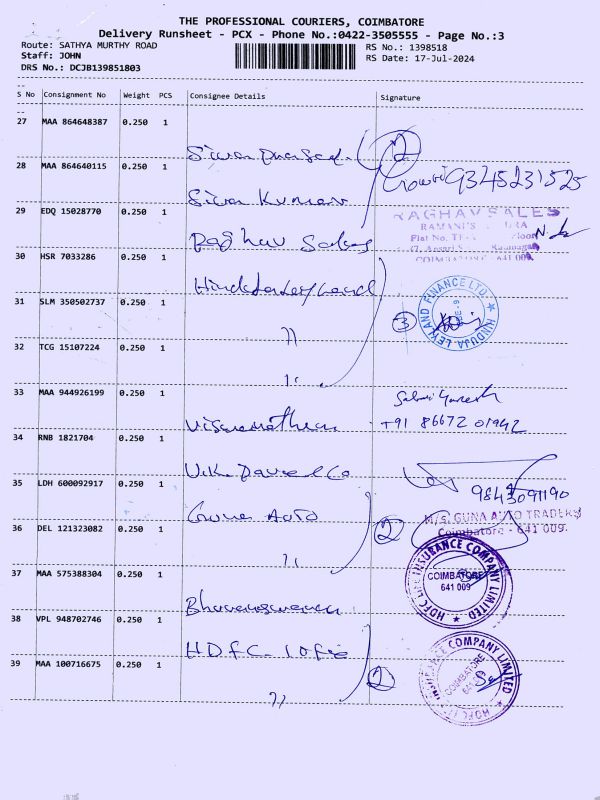 THE PROFESSIONAL COURIERS, COIMBATORE
Delivery Runsheet - PCX - Phone No.:0422-3505555 - Page No.:3
Route: SATHYA MURTHY ROAD
Staff: JOHN
DRS No.: DCJB139851803
RS No.: 1398518
RS Date: 17-Jul-2024
S No Consignment No Weight PCS Consignee Details Signature
27 MAA 864648387 0.250 1
Sivan 2
28 MAA 864640115 0.250 1
Siva Kumar Gowri 9345231525
29 EDQ 15028770 0.250 1
Raghav Sales
RAGHAV SALES
RAMANI'S
Plat No.
Ramnagar
COIMBATORE - 641 009.
30 HSR 7033286 0.250 1
Hinduja Leyland
31 SLM 350502737 0.250 1
3
HINDUJA LEYLAND FINANCE LTD.
32 TCG 15107224 0.250 1
33 MAA 944926199 0.250 1
Viswanathan
Sabari Ganesh
+91 86672 01942
34 RNB 1821704 0.250 1
35 LDH 600092917 0.250 1
9843091190
Guna Auto
M/S. GUNA AUTO TRADERS
Coimbatore - 641 009.
36 DEL 121323082 0.250 1
2
37 MAA 575388304 0.250 1
Bhuvaneswaran
HDFC LIFE INSURANCE COMPANY LIMITED
COIMBATORE
641 009
38 VPL 948702746 0.250 1
HDFC Life
39 MAA 100716675 0.250 1
2
INSURANCE COMPANY LIMITED
COIMBATORE
HDFC